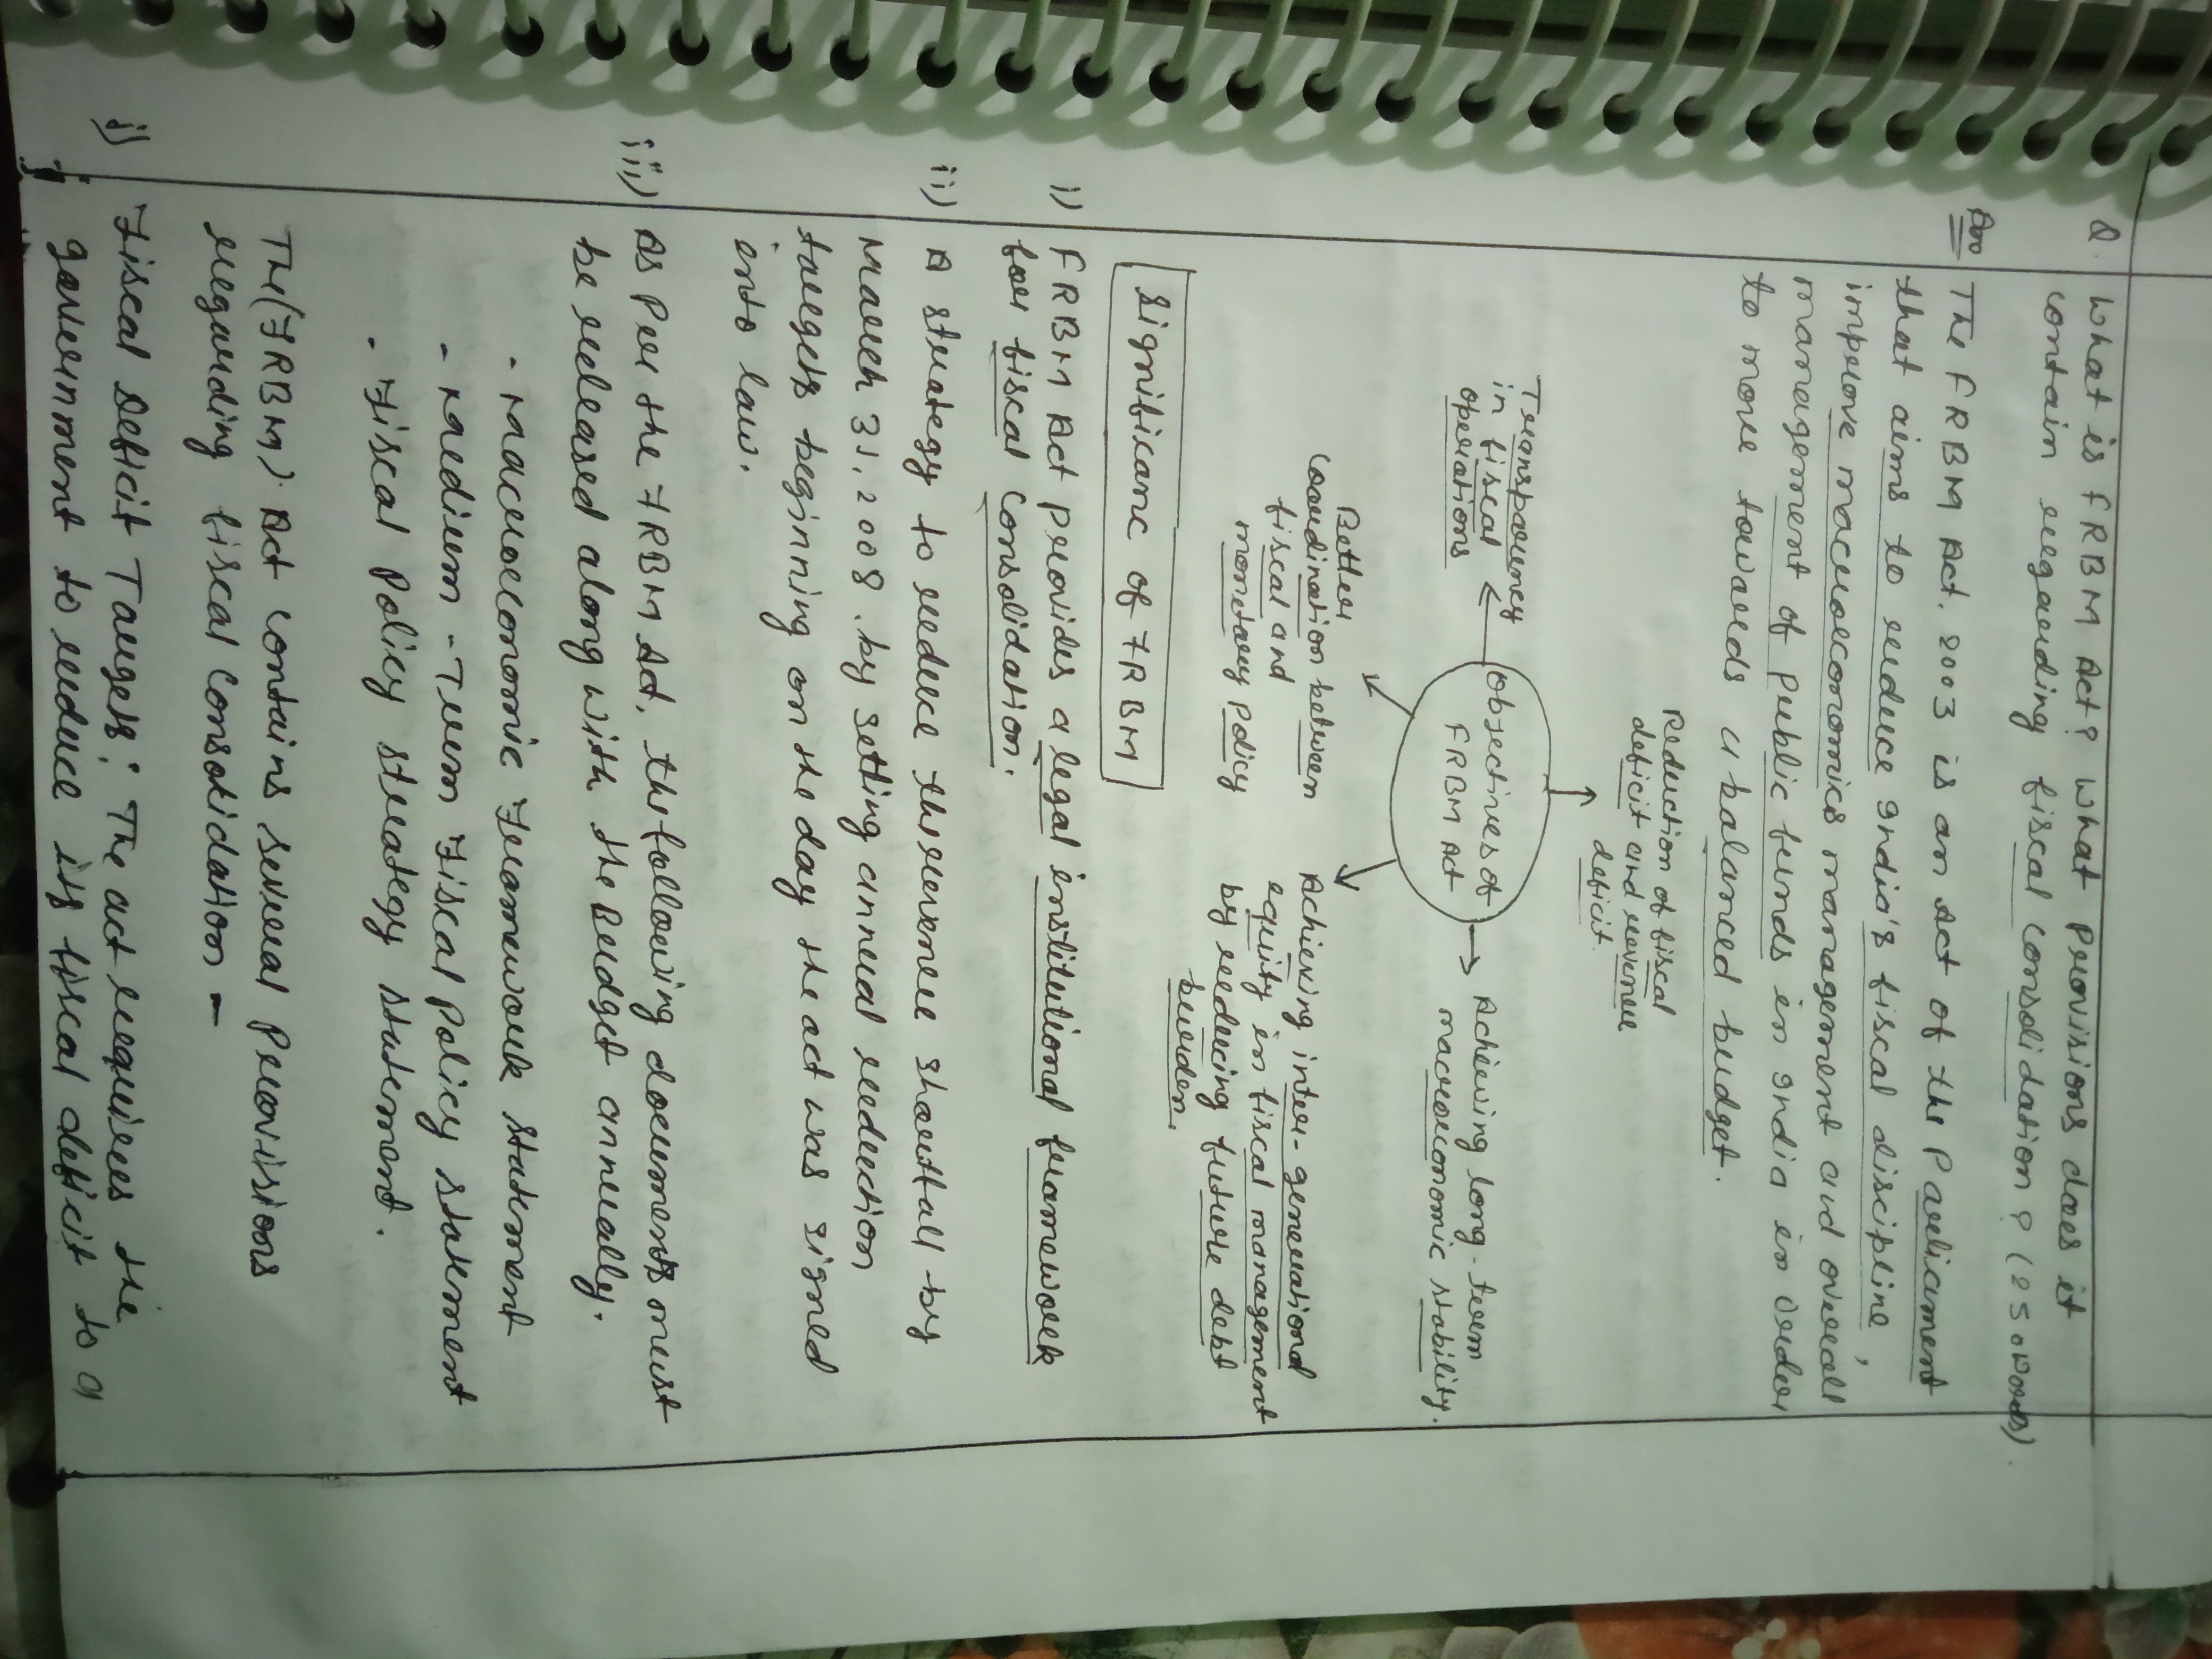 Q. What is FRBM Act? What Provisions does it
contain regarding fiscal consolidation? (250 words).
Ans The FRBM Act. 2003 is an Act of the Parliament
that aims to reduce India's fiscal discipline,
improve macroeconomics management and overall
management of public funds in India in order
to move towards a balanced budget.
Reduction of fiscal
deficit and revenue
deficit.
Transparency
in fiscal
operations
Objectives of
FRBM Act
Achieving long-term
macroeconomic stability.
Better
coordination between
fiscal and
monetary policy
Achieving inter-generational
equity in fiscal management
by reducing future debt
burden.
Significanc of FRBM
i) FRBM Act provides a legal institutional framework
for fiscal consolidation.
ii) A strategy to reduce the revenue shortfall by
March 31, 2008. by setting annual reduction
targets beginning on the day the act was signed
into law.
iii) As Per the FRBM Act, the following documents must
be released along with the Budget annually.
- Macroeconomic Framework statement
- Medium-Term Fiscal Policy statement
- Fiscal Policy strategy statement.
The (FRBM) Act contains several Provisions
regarding fiscal consolidation -
i) Fiscal Deficit Targets: The act requires the
government to reduce its fiscal deficit to a